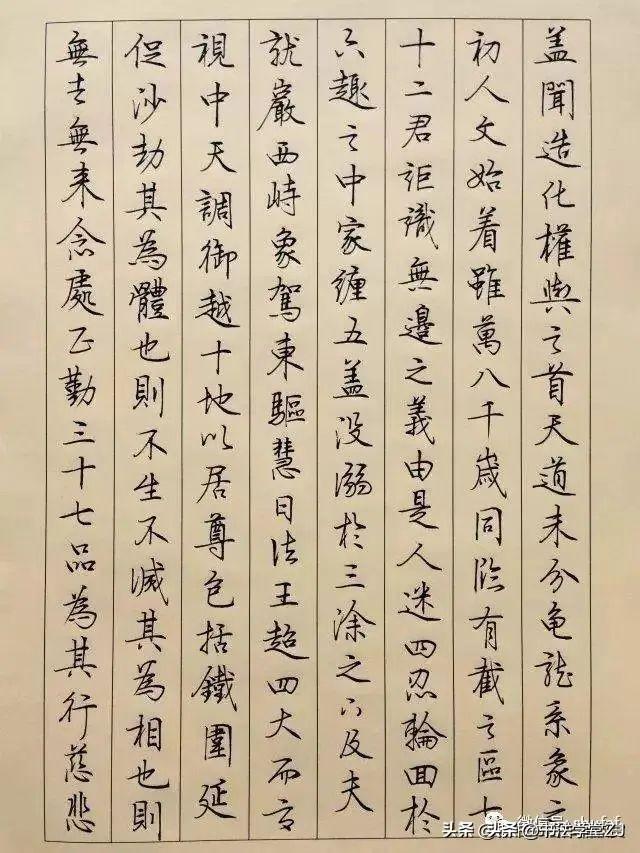 盖聞造化權輿之首天道未分龟龍系象之
初人文始着雖萬八千歲同臨有截之區七
十二君詎識無邊之義由是人迷四忍輪回於
六趣之中家纏五盖没溺於三涂之下及夫
就巖西峙象駕東驅慧日法王超四大而高
視中天調御越十地以居尊包括鐵圍延
促沙劫其為體也則不生不滅其為相也則
無去無来念處正勤三十七品為其行慈悲
微信号:
头条 @头条@书法学堂ZJ